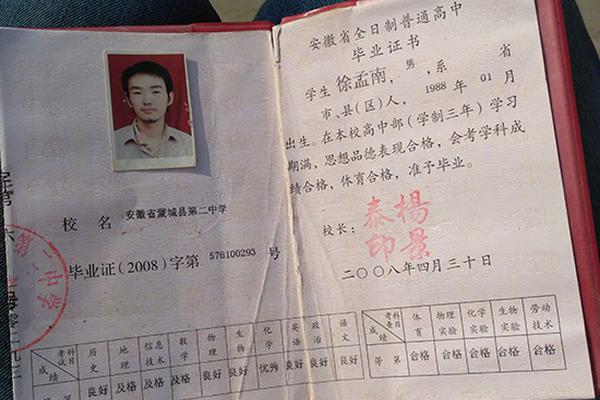 校名 安徽省蒙城县第二中学
毕业证(2008)字第 576100293 号
考试科目 历史 地理 信息技术 数学 物理 生物 化学 英语 政治 语文
成绩 良好 及格 及格 及格 良好 良好 优秀 良好 良好 良好
安徽省全日制普通高中
毕业证书
学生 徐孟南,男,系 省
市、县(区)人,1988 年 01 月
出生。在本校高中部(学制三年)学习
期满,思想品德表现合格,会考学科成
绩合格,体育合格,准予毕业。
校长:
杨景
泰印
二〇〇八年四月三十日
考查科目 体育 物理实验 化学实验 生物实验 劳动技术
成绩
等第 合格 合格 合格 合格 合格